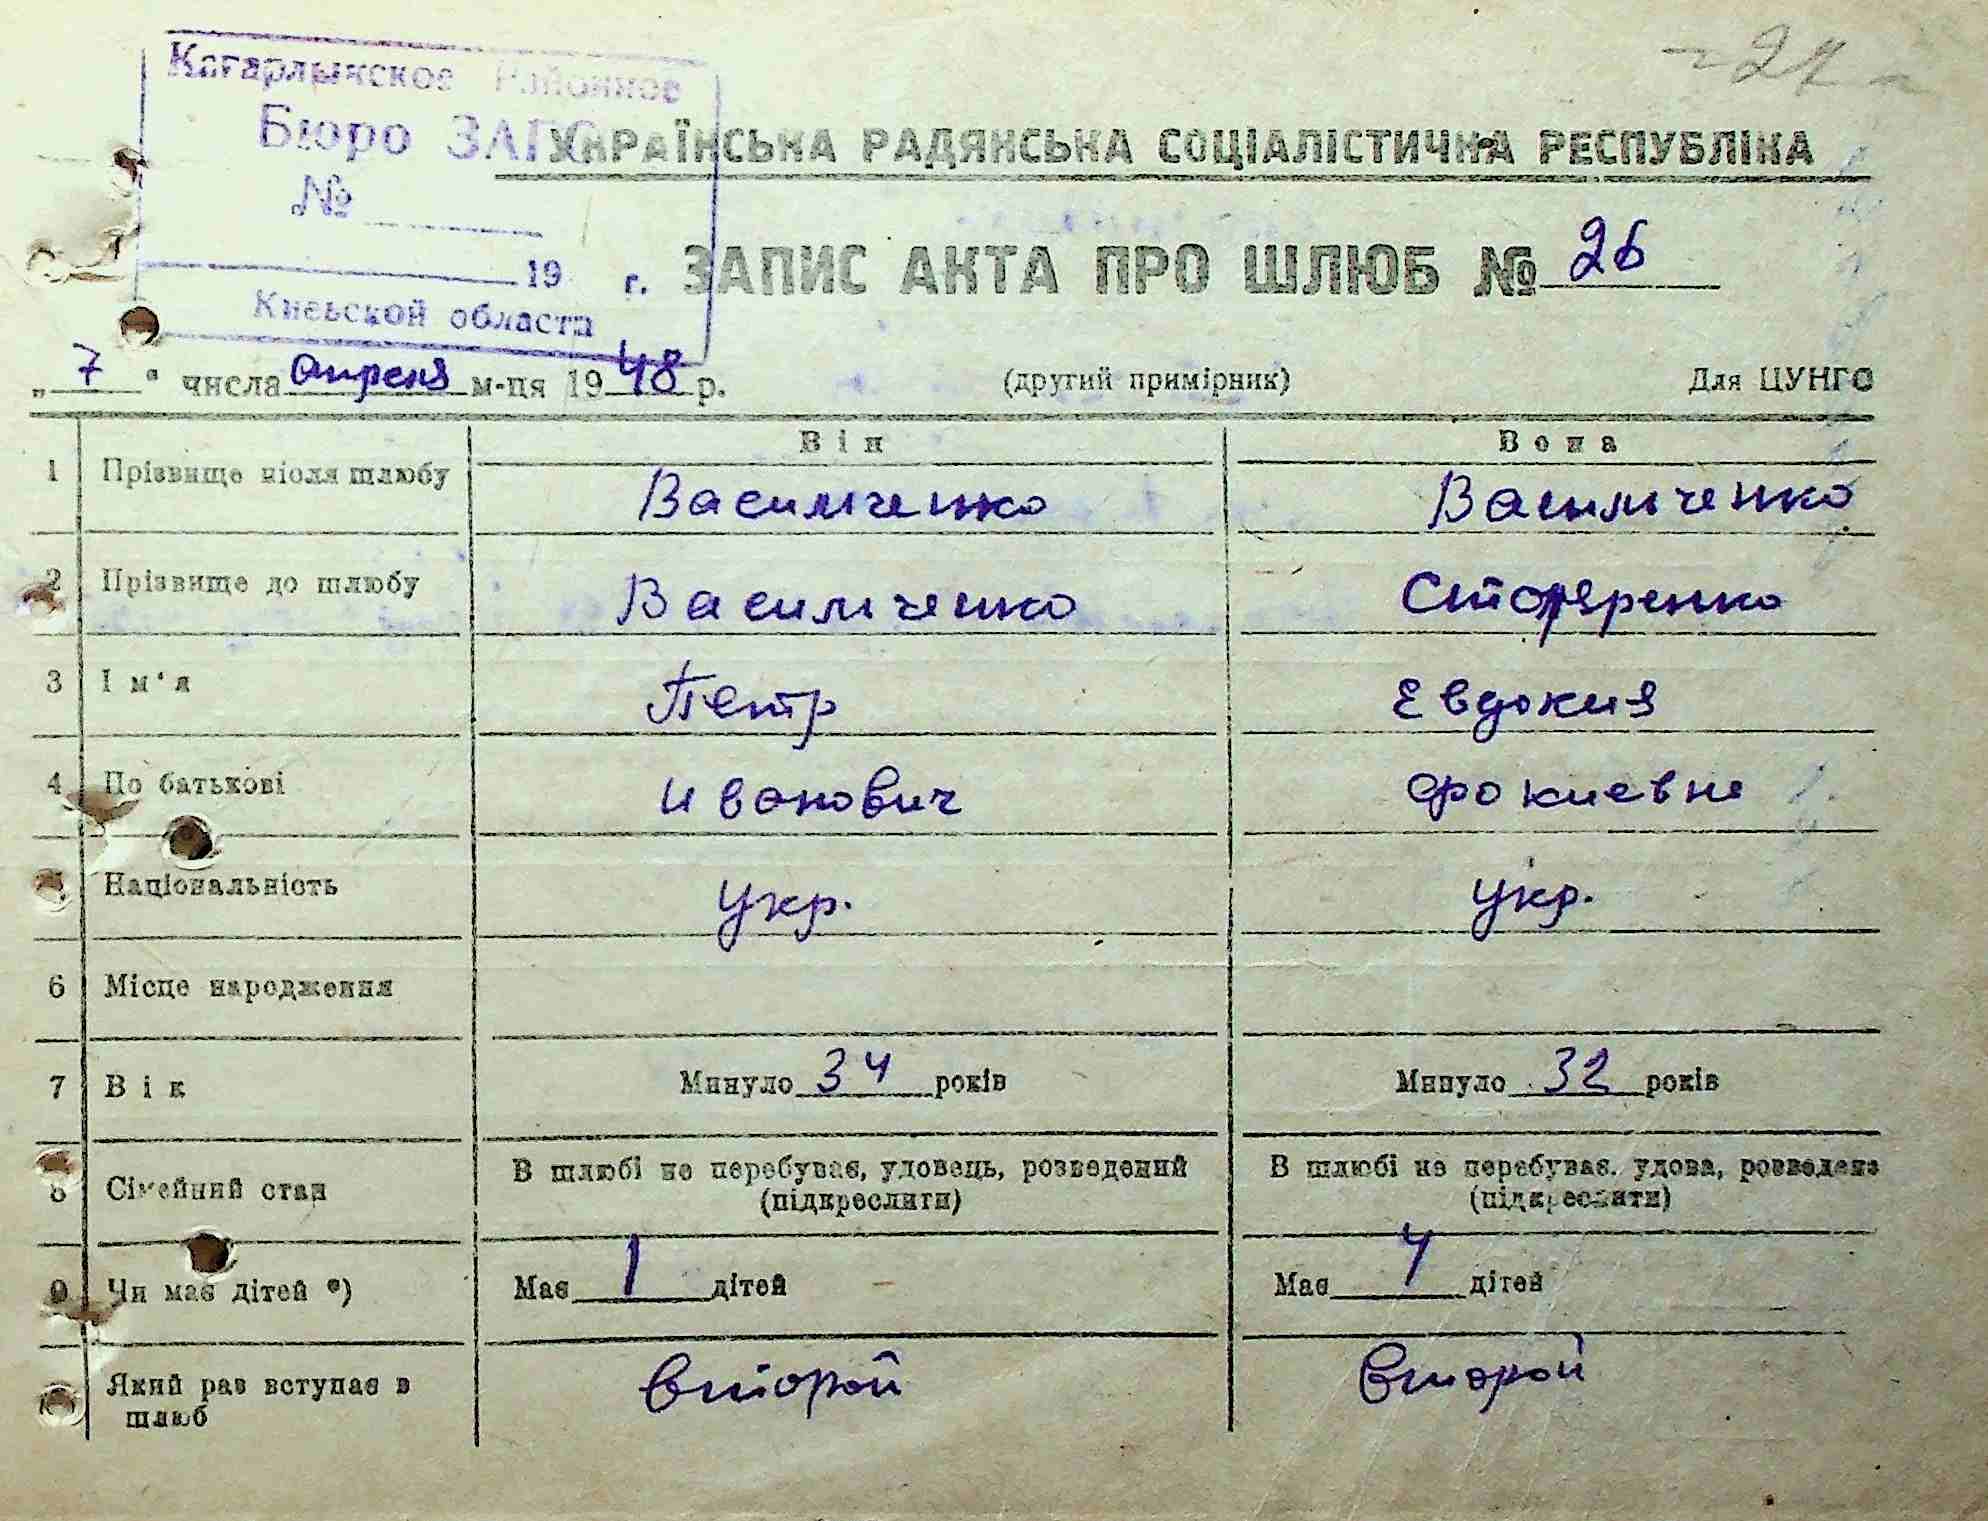 21
Кагарлыкское Районное
Бюро ЗАГС
№
19 г.
Киевской области
УКРАЇНСЬКА РАДЯНСЬКА СОЦІАЛІСТИЧНА РЕСПУБЛІКА
ЗАПИС АКТА ПРО ШЛЮБ № 26
„7“ числа апреля м-ця 1948 р. (другий примірник) Для ЦУНГО
Він Вона
1 Прізвище після шлюбу Васильченко Васильченко
2 Прізвище до шлюбу Васильченко
3 Ім'я Петр Евдокия
4 По батькові Иванович
Національність укр. укр.
6 Місце народження
7 Вік Минуло 34 років Минуло 32 років
8 Сімейний стан В шлюбі не перебуває, удовець, розведений В шлюбі не перебуває. удова, розведена
(підкреслити) (підкреслити)
9 Чи має дітей *) Має 1 дітей Має 4 дітей
Який раз вступає в второй второй
шлюб